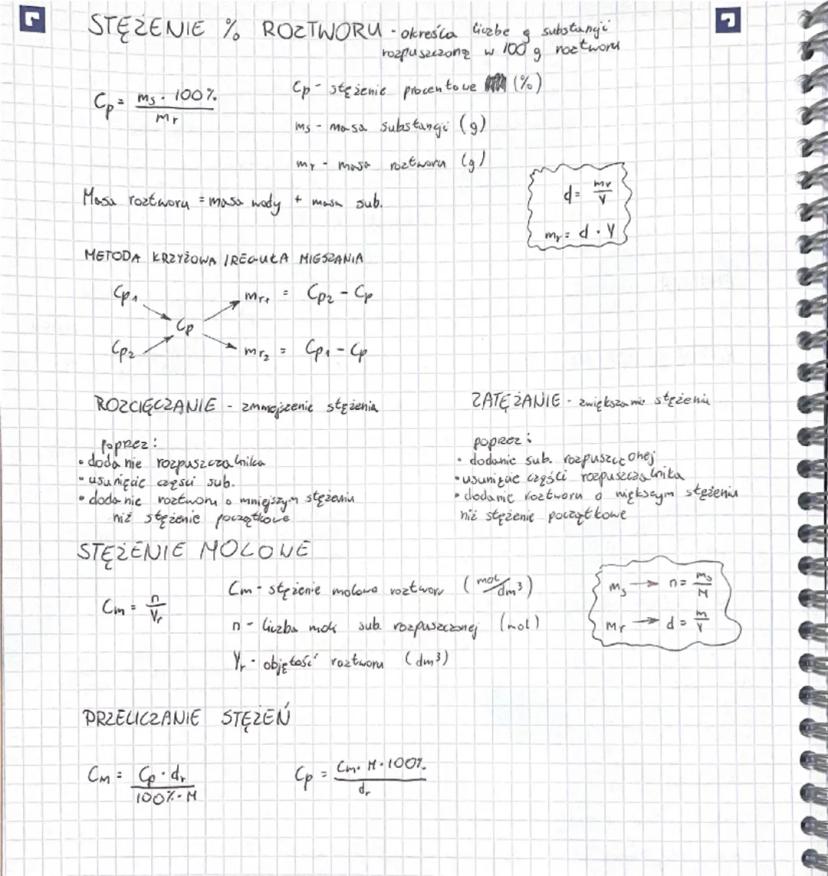 STĘŻENIE % ROZTWORU - określa liczbę g substancji
rozpuszczoną w 100 g roztworu
Cp = ms · 100% / mr
Cp - stężenie procentowe (%)
ms - masa substancji (g)
mr - masa roztworu (g)
Masa roztworu = masa wody + masa sub.
d = mr / V
mr = d · V
METODA KRZYŻOWA / REGUŁA MIESZANIA
Cp1 mr1 = Cp2 - Cp
Cp
Cp2 mr2 = Cp1 - Cp
ROZCIĘCZANIE - zmniejszenie stężenia
poprzez:
• dodanie rozpuszczalnika
• usunięcie części sub.
• dodanie roztworu o mniejszym stężeniu
niż stężenie początkowe
ZATĘŻANIE - zwiększanie stężenia
poprzez:
• dodanie sub. rozpuszczonej
• usunięcie części rozpuszczalnika
• dodanie roztworu o większym stężeniu
niż stężenie początkowe
STĘŻENIE MOLOWE
Cm = n / Vr
Cm - stężenie molowe roztworu (mol/dm³)
n - liczba moli sub. rozpuszczonej (mol)
Vr - objętość roztworu (dm³)
ms → n = ms / M
mr → d = m / V
PRZELICZANIE STĘŻEŃ
Cm = Cp · dr / 100% · M
Cp = Cm · M · 100% / dr